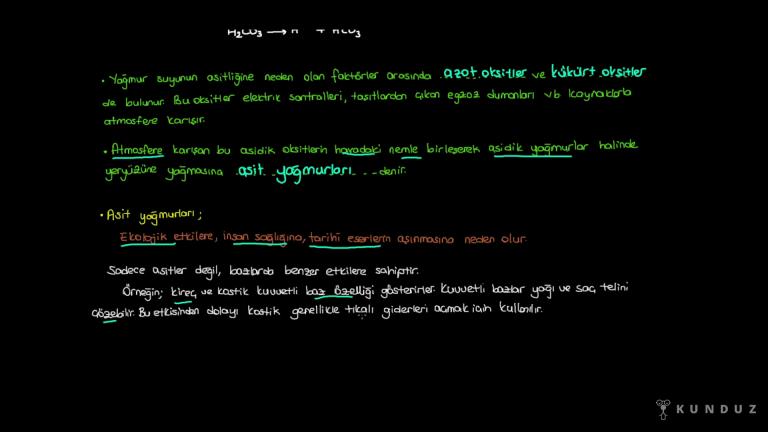 H₂CO₃ → H + HCO₃
• Yağmur suyunun asitliğine neden olan faktörler arasında .azot.oksitler ve kükürt.oksitler
de bulunur. Bu oksitler elektrik santralleri, taşıtlardan çıkan egzoz dumanları vb kaynaklarla
atmosfere karışır.
• Atmosfere karışan bu asidik oksitlerin havadaki nemle birleşerek asidik yağmurlar halinde
yeryüzüne yağmasına .asit. yağmurları. - - - denir.
• Asit yağmurları;
Ekolojik etkilere, insan sağlığına, tarihi eserlerin aşınmasına neden olur.
Sadece asitler değil, bazlarda benzer etkilere sahiptir.
Örneğin; kireç ve kostik kuvvetli baz özelliği gösterirler. Kuvvetli bazlar yağı ve saç telini
çözebilir. Bu etkisinden dolayı kostik genellikle tıkalı giderleri açmak için kullanılır.
KUNDUZ